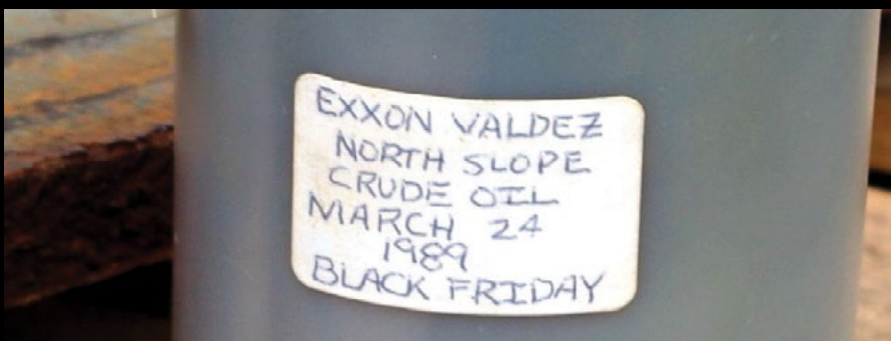 EXXON VALDEZ
NORTH SLOPE
CRUDE OIL
MARCH 24
1989
BLACK FRIDAY